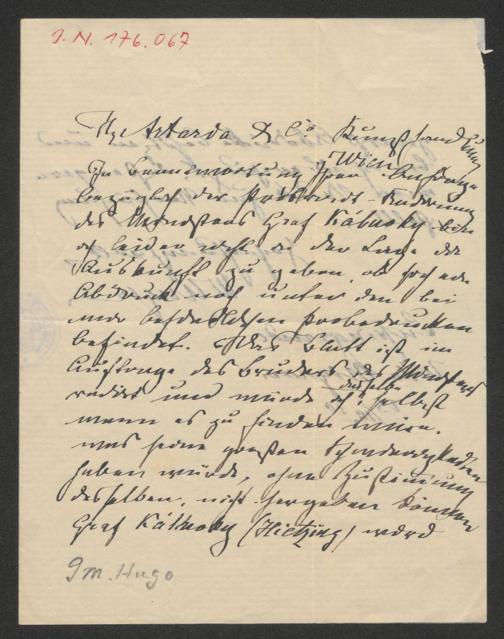 J.N. 176.067
Hr. Artaria & Co. Kunsthandlung
Wien
In Beantwortung Ihrer Anfrage
bezüglich der Porträt-Radierung
des Ministers Graf Kálnoky bin
ich leider nicht in der Lage die
Auskunft zu geben, ob sich ein
Abdruck noch unter den bei
mir befindlichen Probedrucken
befindet. Das Blatt ist im
Auftrage des Bruders des Ministers
radiert und würde ich dasselbe selbst
wenn es zu finden wäre,
was seine großen Schwierigkeiten
haben würde, ohne Zustimmung
desselben, nicht hergeben können
Graf Kálnoky (Hietzing) wird
I.M. Hugo